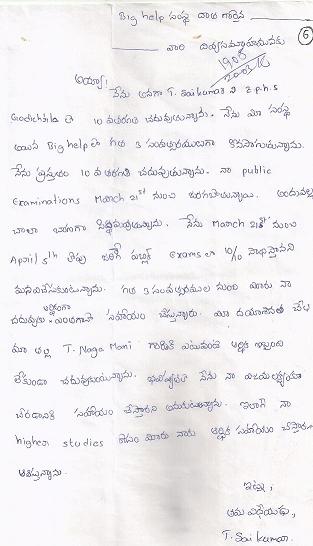 Big help సంస్థ దాత గారైన
6
వారి దివ్యసమ్ముఖమునకు
అయ్యా!
నేను అనగా T. Sai kumar Z.p.h.s
లో 10 వ తరగతి చదువుతున్నాను. నేను మీ సంస్థ
అయిన Big help లో గత 3 సంవత్సరములుగా కొనసాగుతున్నాను.
నేను ప్రస్తుతం 10 వ తరగతి చదువుతున్నాను. నా public
Examinations March 21st నుంచి జరగబోతున్నాయి. అందువల్ల
చాలా బాగుగా సిద్ధమవుతున్నాను. నేను March 21st నుంచి
April 5th వరకు జరిగే పబ్లిక్ Exams లో 10/10 సాధిస్తానని
మనవిచేసుకుంటున్నాను. గత 3 సంవత్సరముల నుంచి మీరు నా
చదువుకు ఆర్థికంగా ఎంతగానో సహాయం చేస్తున్నారు. మీ దయాగుణం చేత
మా తల్లి T. Naga Mani గారికి ఎటువంటి ఆర్థిక ఇబ్బంది
లేకుండా చదువుకుంటున్నాను. భవిష్యత్తులో నేను నా విజయలక్ష్యం
చేరడానికి సహాయం చేస్తారని అనుకుంటున్నాను. ఇలాగే నా
higher studies కోసం మీరు నాకు ఆర్థిక సహాయం చేస్తారని
ఆశిస్తున్నాను.
ఇట్లు,
తమ విధేయుడు,
T. Sai kumar.